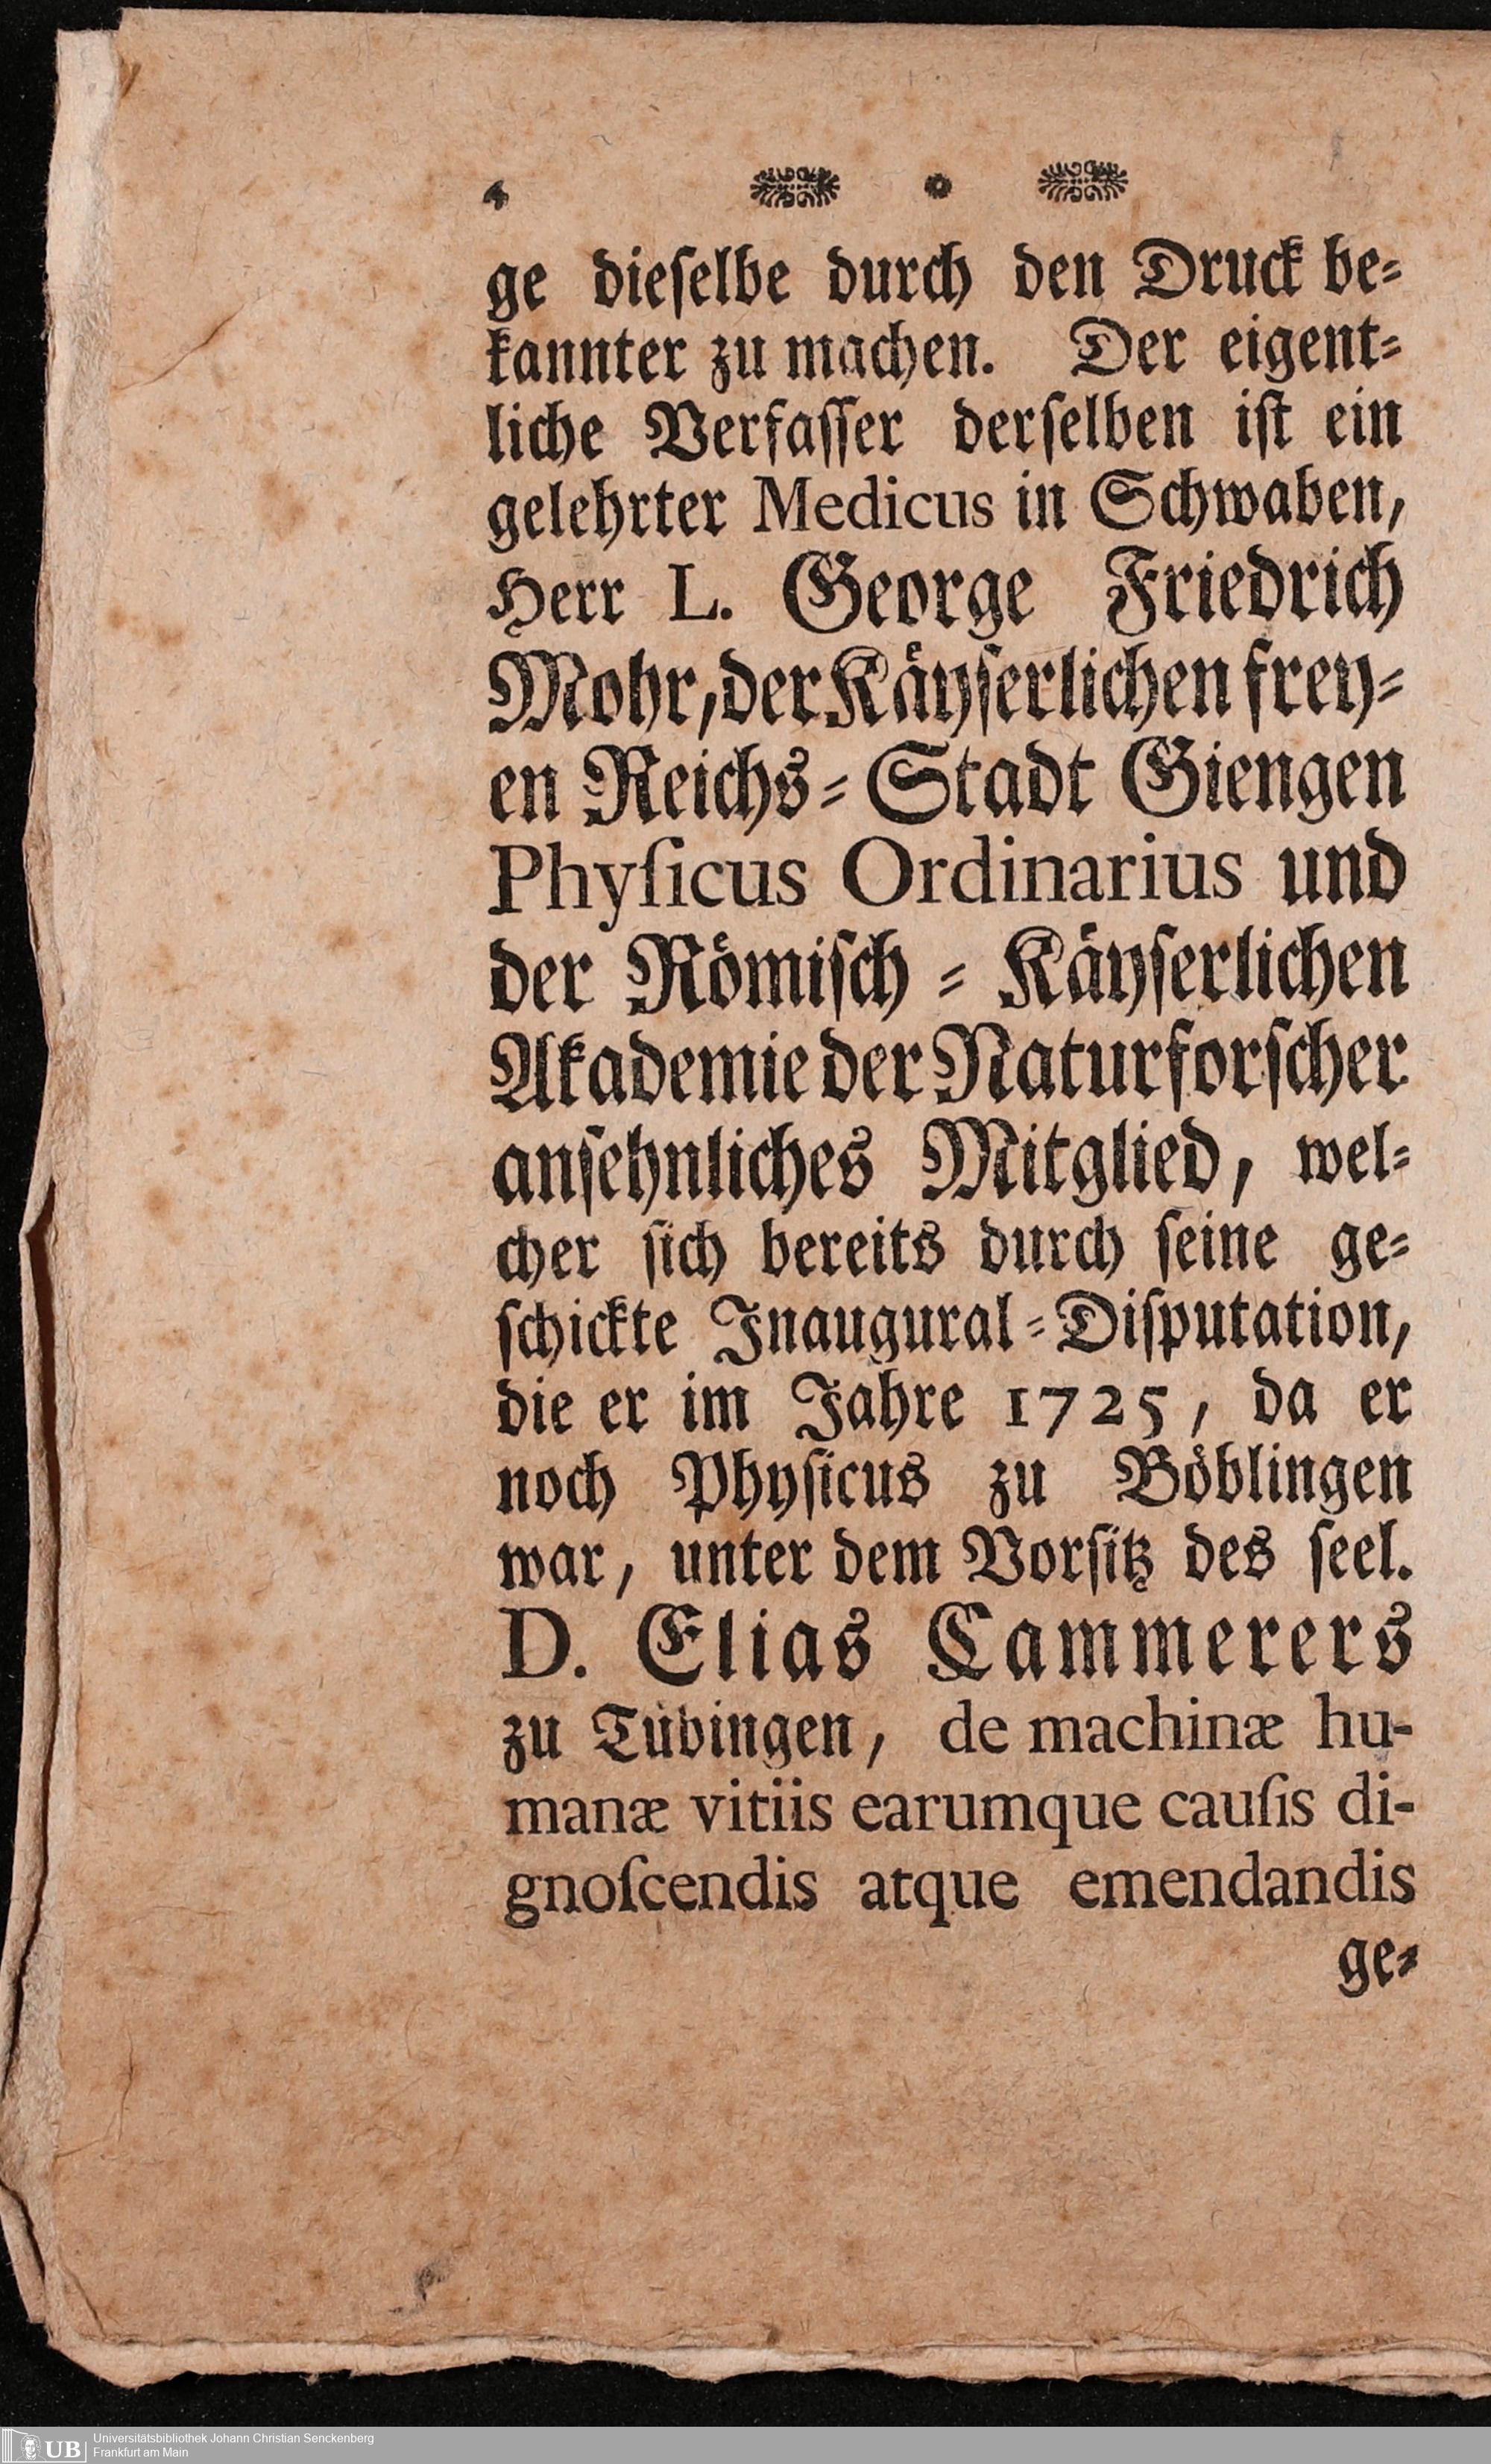 4
ge dieſelbe durch den Druck be⸗
kannter zu machen. Der eigent⸗
liche Verfaſſer derſelben iſt ein
gelehrter Medicus in Schwaben,
Herr L. George Friedrich
Mohr, der Käyſerlichen frey⸗
en Reichs⸗Stadt Giengen
Phyſicus Ordinarius und
der Römiſch⸗Käyſerlichen
Akademie der Naturforſcher
anſehnliches Mitglied, wel⸗
cher ſich bereits durch ſeine ge⸗
ſchickte Inaugural⸗Diſputation,
die er im Jahre 1725, da er
noch Phyſicus zu Böblingen
war, unter dem Vorſitz des ſeel.
D. Elias Cammerers
zu Tübingen, de machinæ hu-
manæ vitiis earumque cauſis di-
gnoſcendis atque emendandis
ge⸗
UB
Universitätsbibliothek Johann Christian Senckenberg
Frankfurt am Main